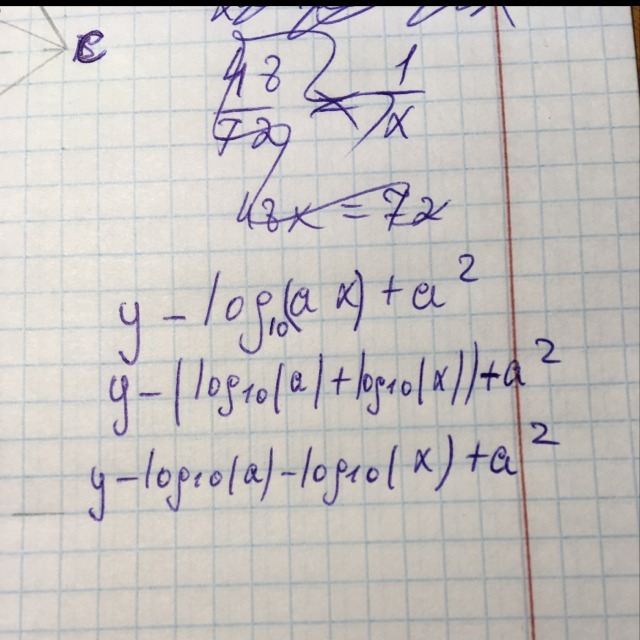 B
48 1
72 = x
48x = 72
y - log₁₀(a x) + a²
y - (log₁₀(a) + log₁₀(x)) + a²
y - log₁₀(a) - log₁₀(x) + a²